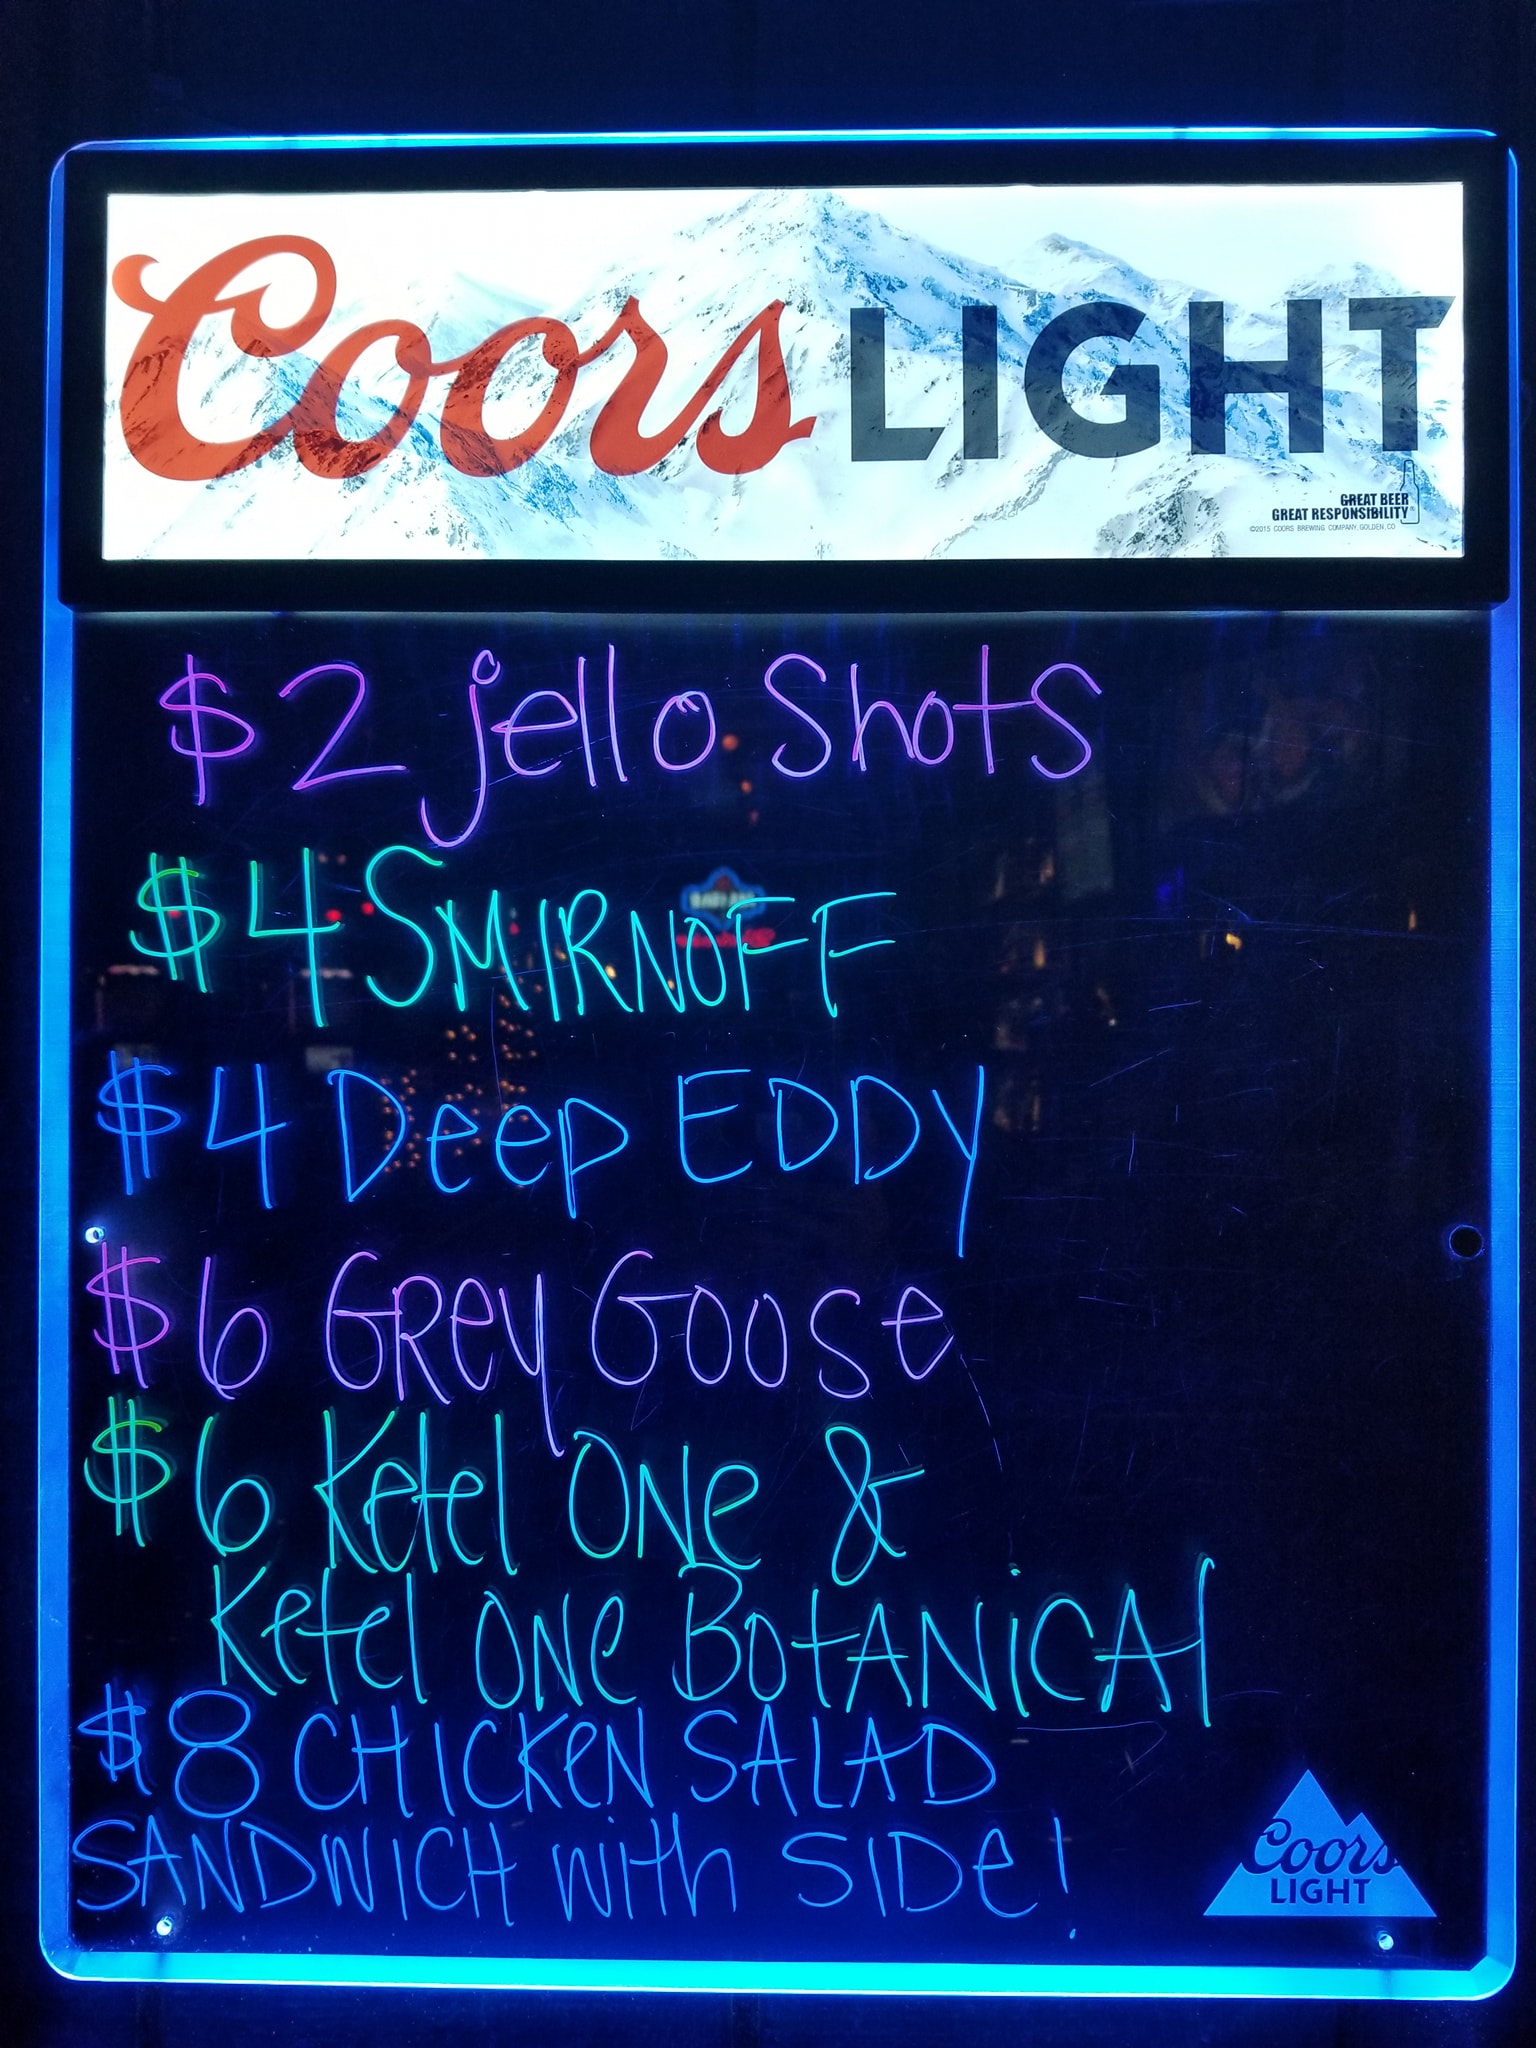 Coors LIGHT
GREAT BEER
GREAT RESPONSIBILITY®
©2015 COORS BREWING COMPANY, GOLDEN, CO
$2 jello Shots
$4 SMIRNOFF
$4 Deep EDDy
$6 GRey Goose
$6 Ketel ONe &
Ketel ONe BotANiCAl
$8 CHICKeN SALAD
SANDWICH with SIDe!
Coors
LIGHT